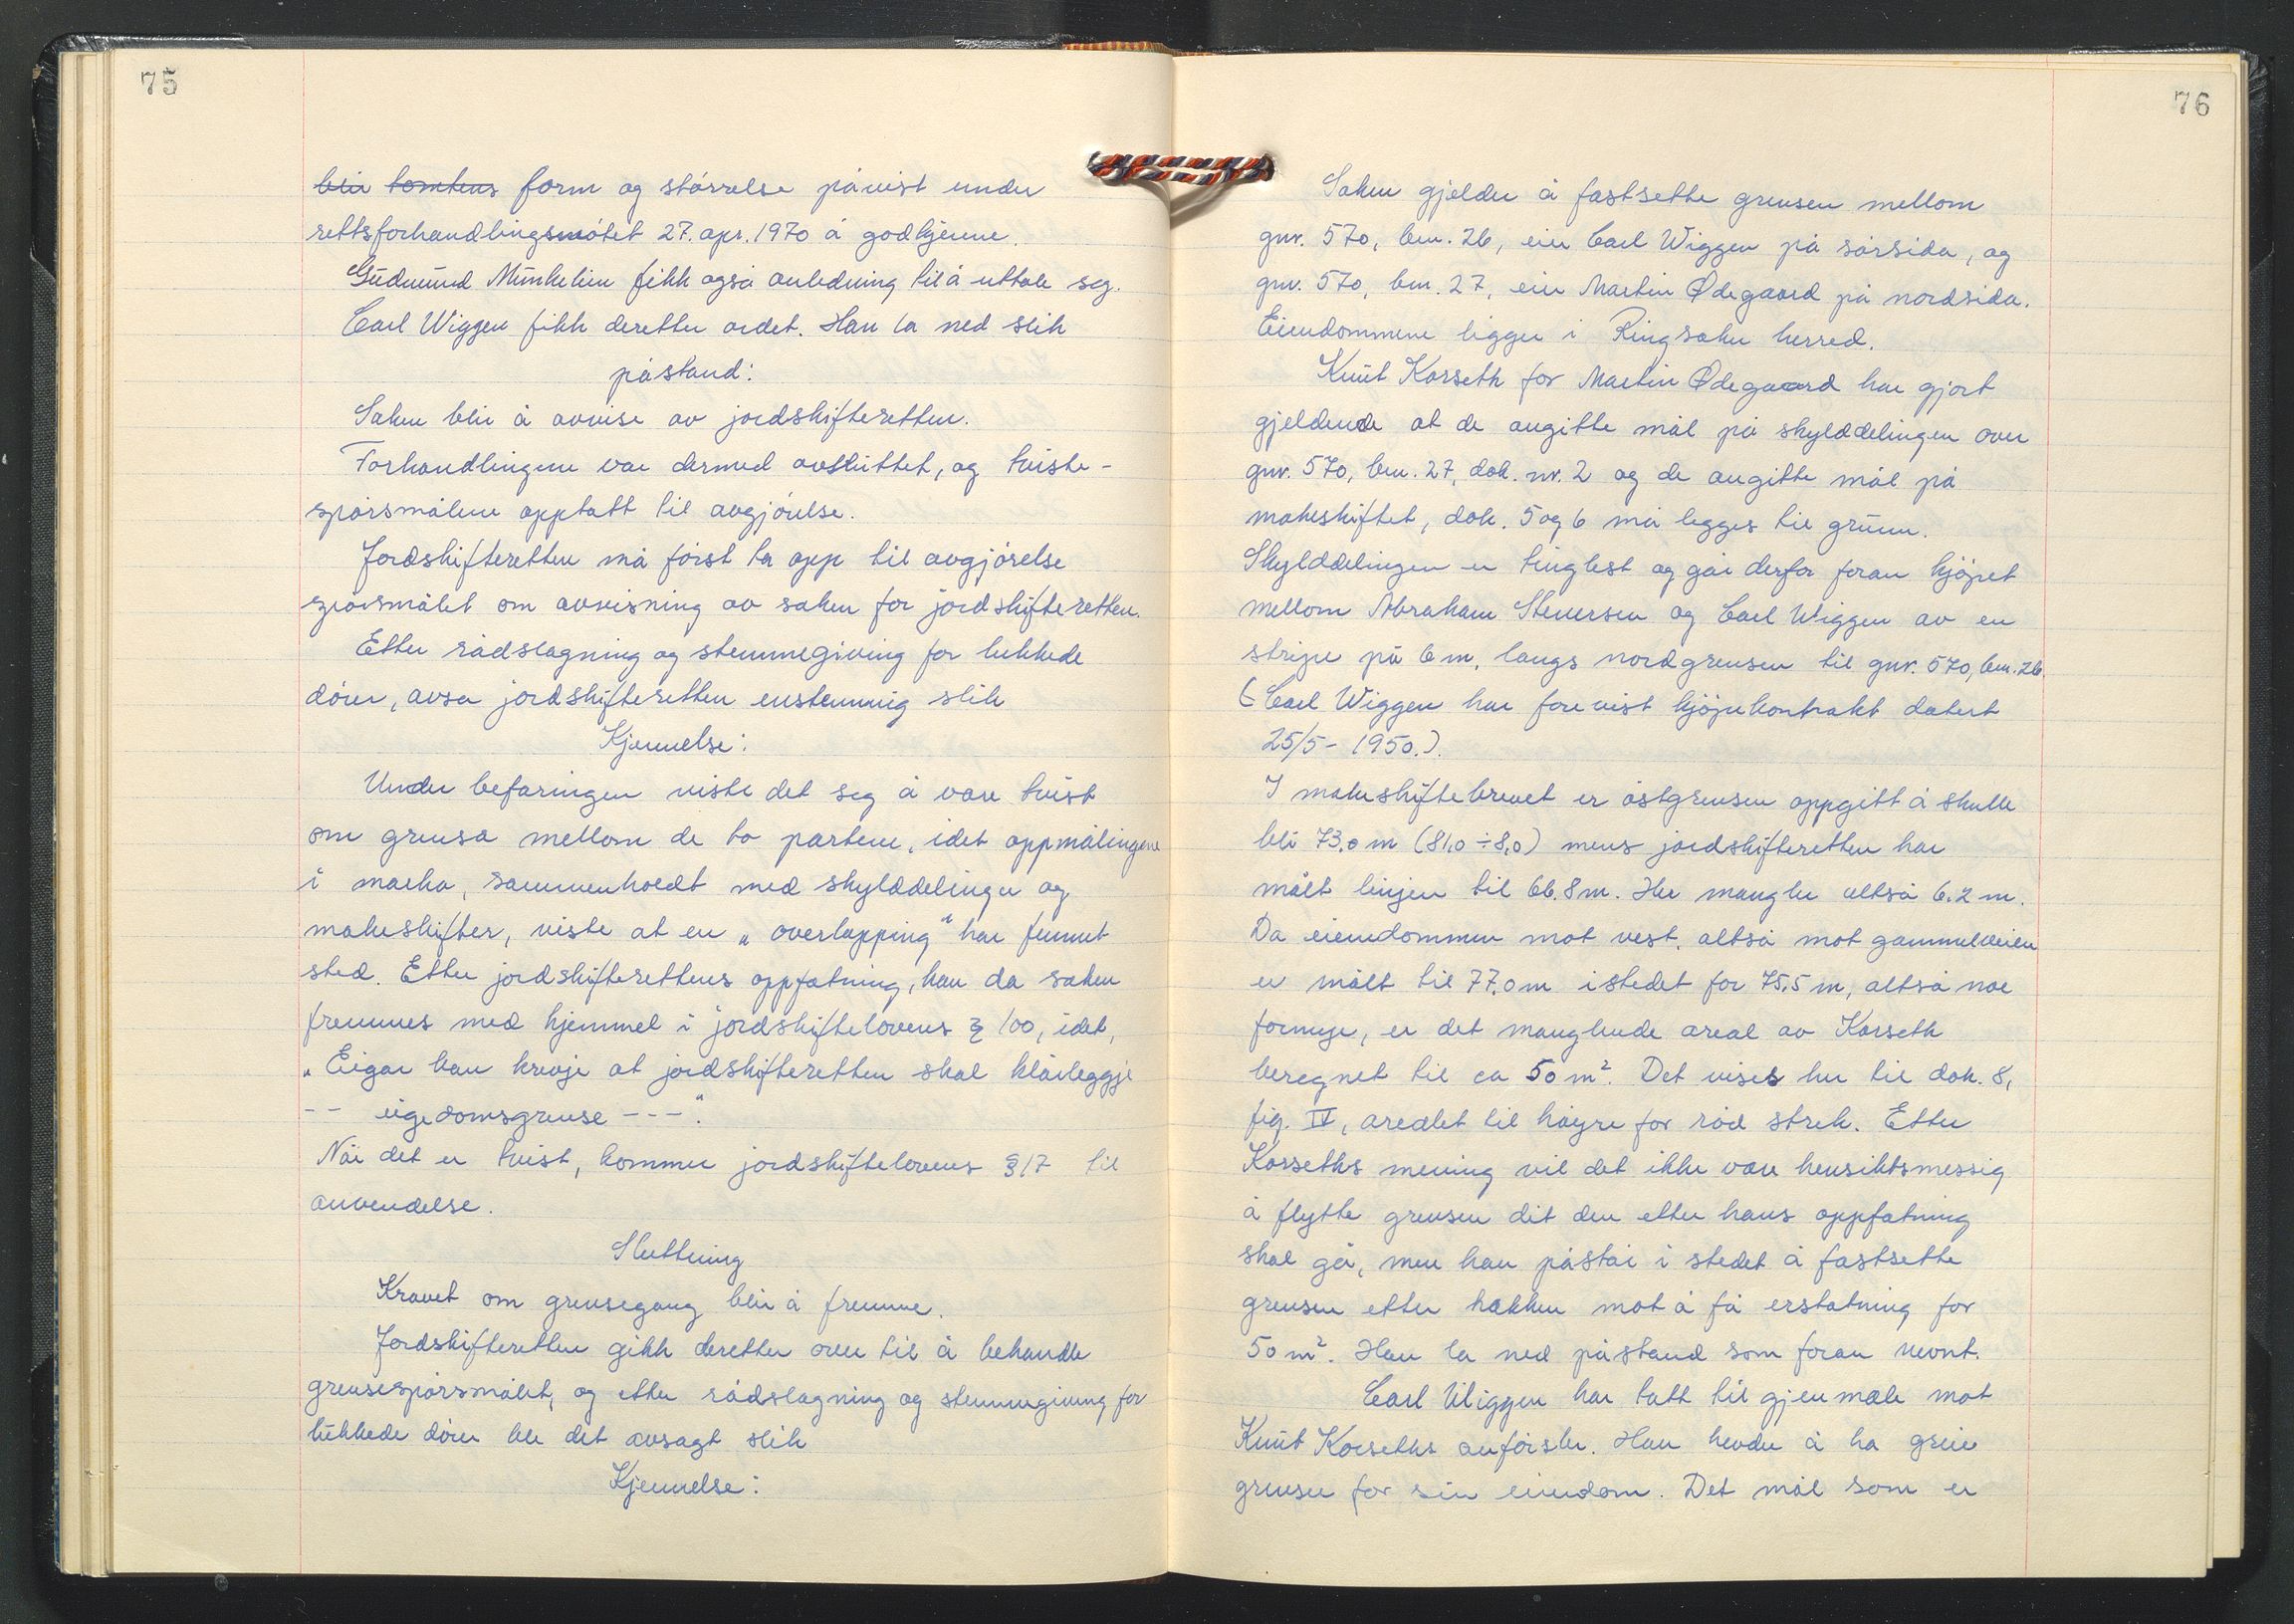 75
blir tomtens form og størrelse påvist under
rettsforhandlingsmøtet 27. apr. 1970 å godkjenne.
Gudmund Munkelien fikk også anledning til å uttale seg.
Carl Wiggen fikk deretter ordet. Han la ned slik
påstand:
Saken blir å avvise av jordskifteretten.
Forhandlingene var dermed avsluttet, og tviste-
spørsmålene opptatt til avgjørelse.
Jordskifteretten må først ta opp til avgjørelse
spørsmålet om avvisning av saken for jordskifteretten.
Etter rådslagning og stemmegiving for lukkede
dører, avsa jordskifteretten enstemmig slik
Kjennelse:
Under befaringen viste det seg å være tvist
om grensa mellom de to partene, idet oppmålingene
i marka, sammenholdt med skylddelinger og
makeskifter, viste at en „overlapping" har funnet
sted. Etter jordskifterettens oppfatning, kan da saken
fremmes med hjemmel i jordskiftelovens § 100, idet,
„Eigar kan krevje at jordskifteretten skal klårleggje
-- eigedomsgrense ---".
Når det er tvist, kommer jordskiftelovens § 17 til
anvendelse.
Slutning
Kravet om grensegang blir å fremme.
Jordskifteretten gikk deretter over til å behandle
grensespørsmålet, og etter rådslagning og stemmegiving for
lukkede dører ble det avsagt slik
Kjennelse:
76
Saken gjelder å fastsette grensen mellom
gnr. 570, bnr. 26, eier Carl Wiggen på sørsida, og
gnr. 570, bnr. 27, eier Martin Ødegaard på nordsida.
Eiendommene ligger i Ringsaker herred.
Knut Korseth for Martin Ødegaard har gjort
gjeldende at de angitte mål på skylddelingen over
gnr. 570, bnr. 27, dok. nr. 2 og de angitte mål på
makeskiftet, dok. 5 og 6 må legges til grunn.
Skylddelingen er tinglest og går derfor foran kjøpet
mellom Abraham Stenersen og Carl Wiggen av en
stripe på 6 m, langs nordgrensen til gnr. 570, bnr. 26.
(Carl Wiggen har forevist kjøpekontrakt datert
25/5 - 1950.).
I makeskiftebrevet er østgrensen oppgitt å skulle
bli 73,0 m (81,0 ÷ 8,0) mens jordskifteretten har
målt linjen til 66.8 m. Her mangler altså 6.2 m.
Da eiendommen mot vest, altså mot gammelveien
er målt til 77,0 m istedet for 75,5 m, altså noe
formye, er det manglende areal av Korseth
beregnet til ca 50 m². Det vises her til dok. 8,
fig. IV, arealet til høyre for rød strek. Etter
Korseths mening vil det ikke være hensiktsmessig
å flytte grensen dit den etter hans oppfatning
skal gå, men han påstår i stedet å fastsette
grensen etter hekken mot å få erstatning for
50 m². Han la ned påstand som foran nevnt.
Carl Wiggen har tatt til gjenmæle mot
Knut Korseths anførsler. Han hevder å ha greie
grenser for sin eiendom. Det mål som er